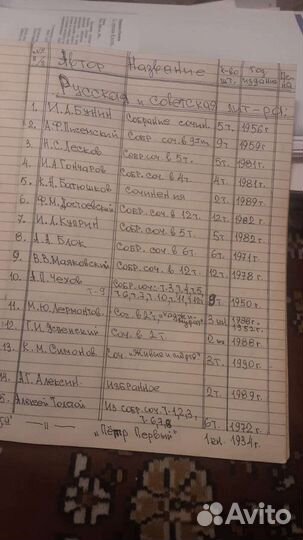 №№ п/п Автор Название к-во шт. Год издание Цена
Русская и советская лит-ра:
1. И.А. Бунин Собрание сочин. 5т. 1956г
2. А.Ф. Писемский Собр. соч. в 9т. 9т 1959г
3. Н.С. Лесков Собр. соч в 5т. 5т. 1981г.
4. И.А Гончаров Собр. соч. в 4т 4т. 1981г.
5. К.Н. Батюшков Сочинения 2т. 1989г.
6. Ф.М. Достоевский Собр. соч. в 12т. 12т. 1982г.
7. И.А. Куприн Собр. соч в 5т. 5т 1982г.
8. А.А. Блок Собр. соч. в 6т. 6т. 1971г.
9. В.В. Маяковский Собр. соч. в 12т. 12т. 1978г.
10. А.П. Чехов Собр. соч. 9т 1950г.
11. М.Ю. Лермонтов. Соч. в 2т.
12. Г.И. Успенский Соч. в 2т 1988г.
13. К.М. Симонов. Соч. "Живые и мёртв" 3т. 1990г.
14. А.Г. Алексин. Избранное 2т. 1989г.
Алексей Толстой Из собр. соч. т. 1,2,3, т. 6,7,8 6т. 1972г.
—"— "Пётр Первый" 1кн. 1934г.
Avito